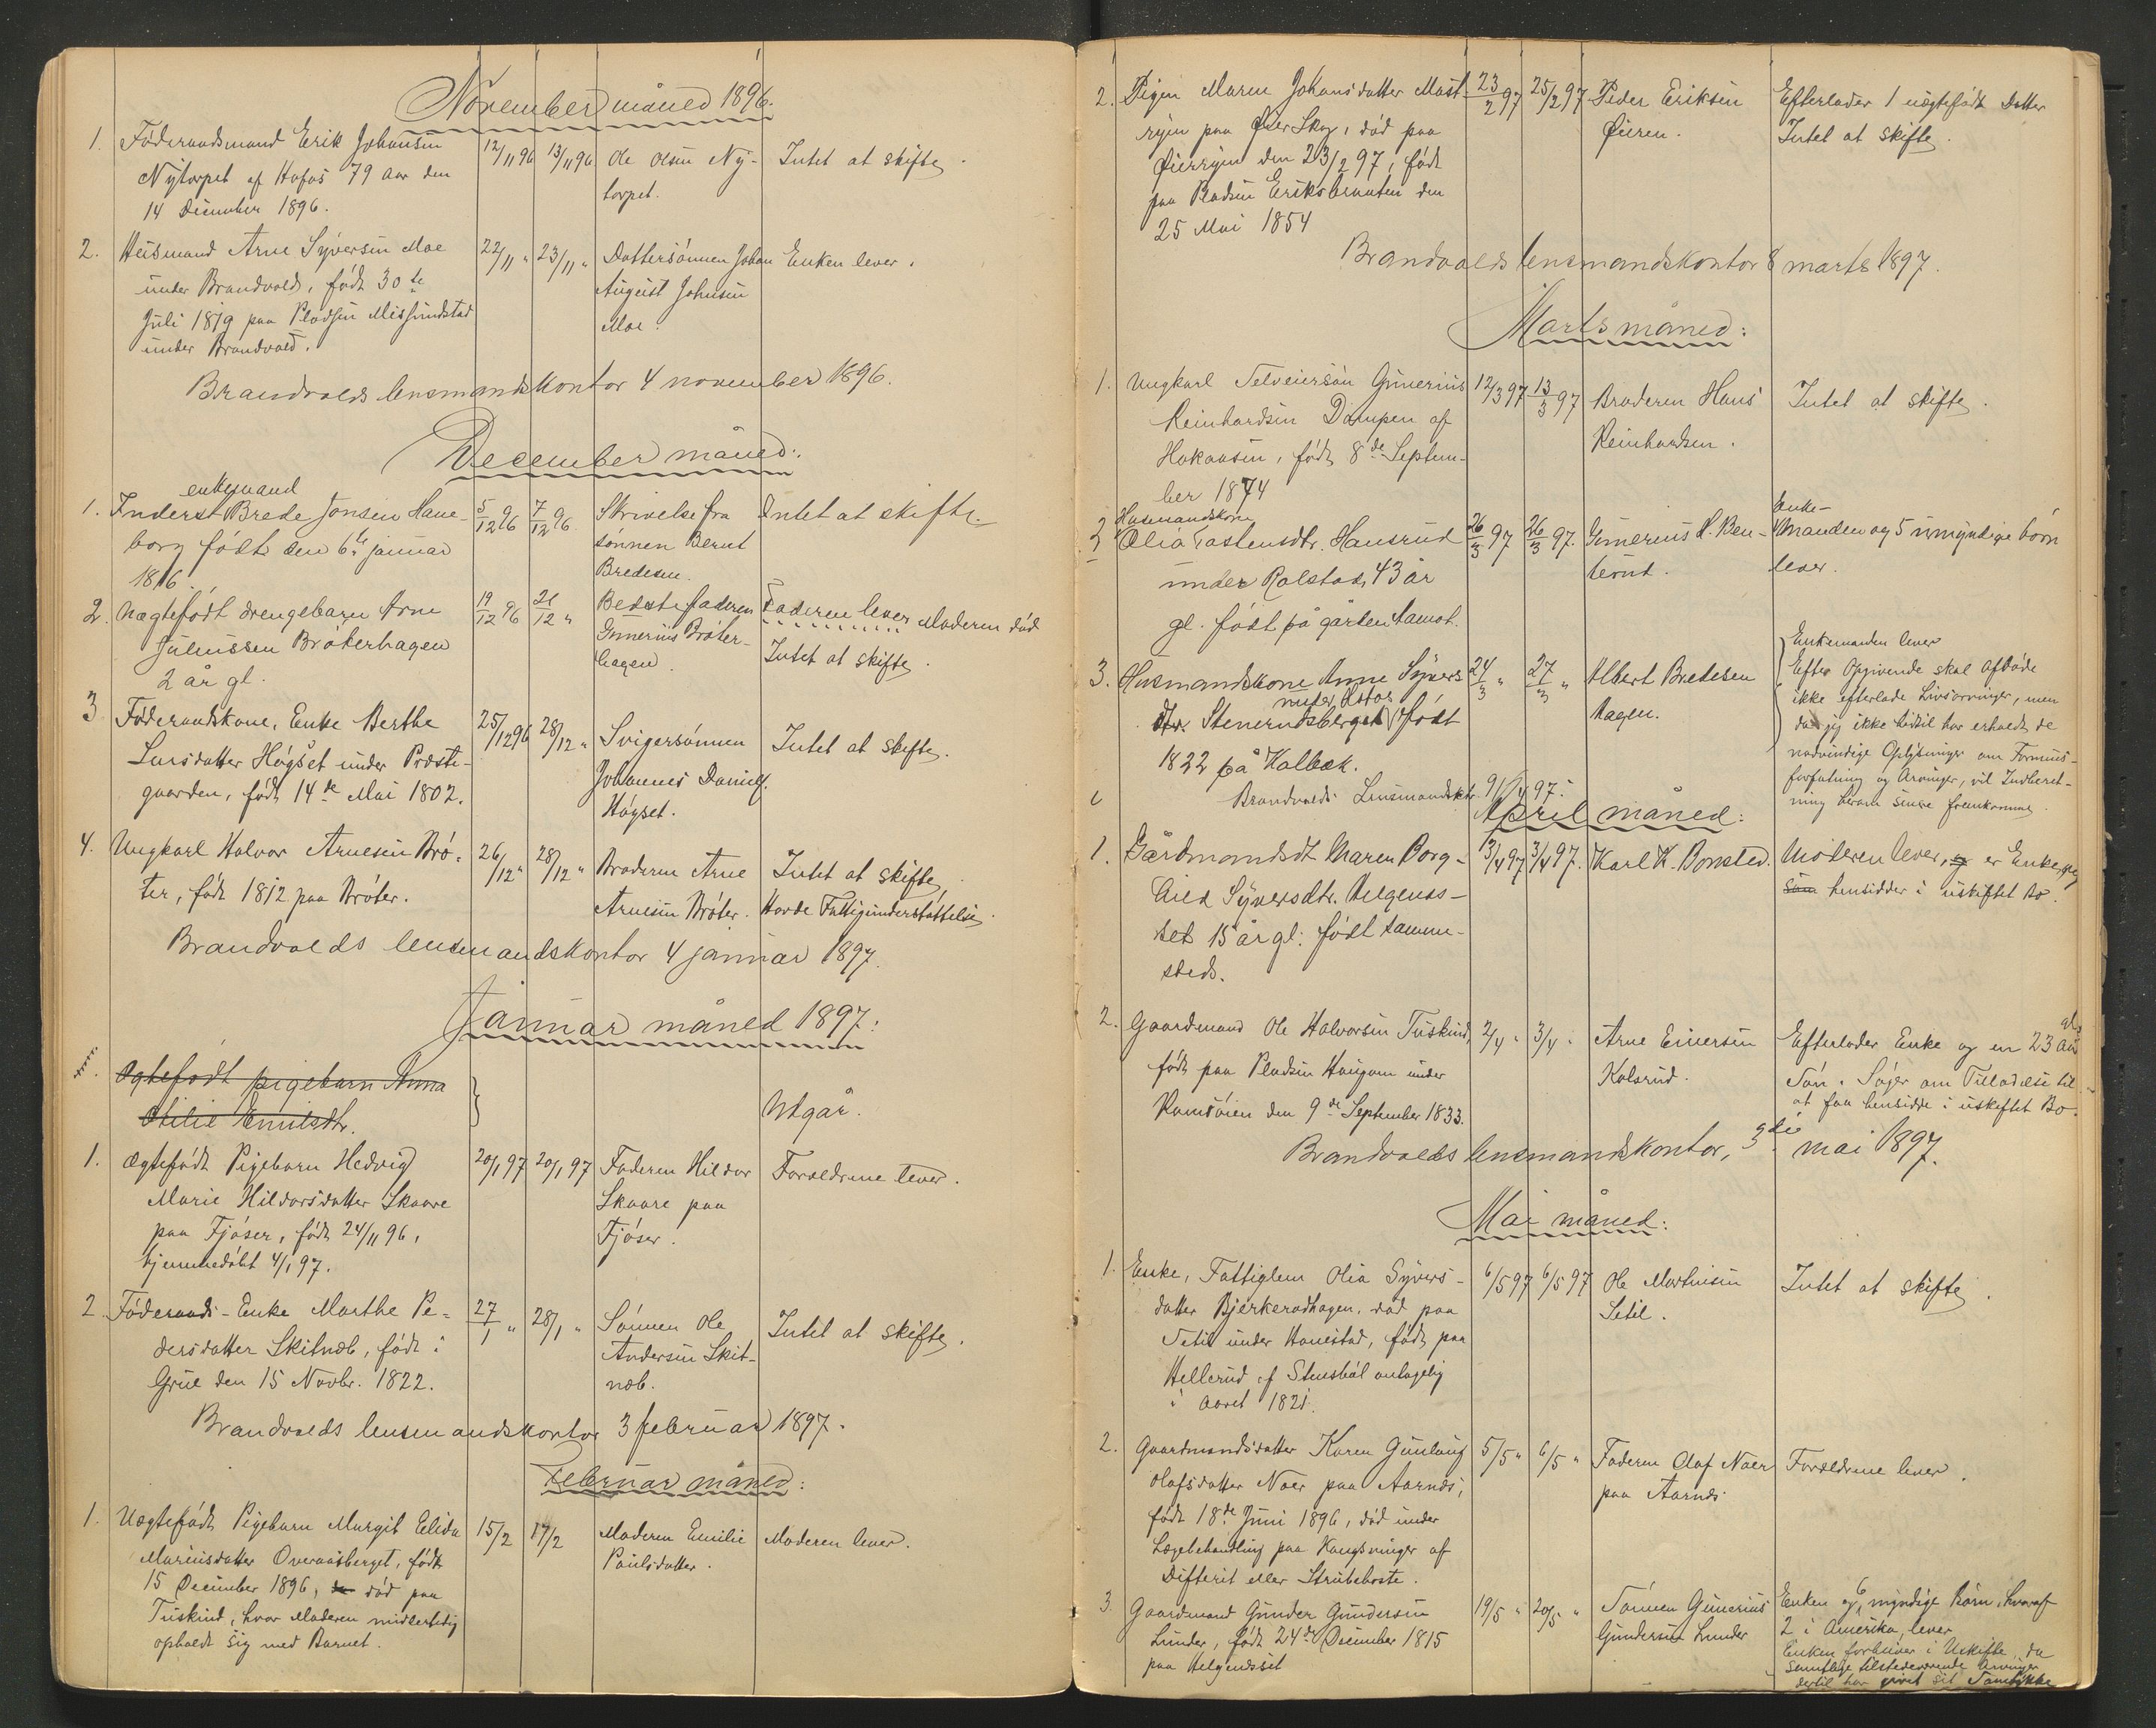 November måned 1896.
1. Föderaadsmand Erik Johansen 12/11 96 13/11 96 Ole Olsen Ny- Intet at skifte.
Nytorpet af Hofos 79 Aar den torpet.
14 December 1896.
2. Huismand Arne Syversen Moe 22/11 " 23/11 " Dattersönnen Johan Enken lever.
under Brandvold, född 30te August Johnsen
Juli 1819 paa Pladsen Missundstad Moe.
under Brandvold.
Brandvolds lensmandskontor 4 november 1896.
December måned:
enkemand
1. Inderst Brede Jonsen Hane- 5/12 96 7/12 96 Skrivelse fra Intet at skifte.
borg född den 6te januar sönnen Bernt
1816. Bredesen.
2. Uægtefödt drengebarn Arne 19/12 96 21/12 " Bedstefaderen Faderen lever Moderen död
Juliussen Bröterhagen Gunerius Bröter- Intet at skifte.
2 år gl. hagen.
3 Föderaadskone, Enke Berthe 25/12 96 28/12 " Svigersönnen Intet at skifte.
Larsdatter Högset under Præste- Johannes Daniels.
gaarden, född 14de Mai 1802. Högset.
4. Ungkarl Halvor Arnesen Brö- 26/12 " 28/12 " Broderen Arne Intet at skifte,
ter, född 1812 paa Bröter. Arnesen Bröter. Havde Fattigunderstöttelse.
Brandvolds lensmandskontor 4 januar 1897.
Januar måned 1897:
Ægtefödt pigebarn Anna
Otilie Emilsdtr. Utgår.
1. Ægtefödt Pigebarn Hedvig 20/1 97 20/1 97 Faderen Hildor Forældrene lever.
Marie Hildorsdatter Skaare Skaare paa
paa Fjöser, född 24/11 96, Fjöser.
hjemmedöbt 4/1 97.
2. Föderaads-Enke Marthe Pe- 27/1 " 28/1 " Sönnen Ole Intet at skifte.
dersdatter Skitnæb, född i Andersen Skit-
Grue den 15 Novbr. 1822. næb.
Brandvolds lensmandskontor 3 februar 1897.
Februar måned:
1. Uægtefödt Pigebarn Margit Elida 15/2 17/2 Moderen Emilie Moderen lever.
Mariusdatter Overaasberget, född Paulsdatter.
15 December 1896, död paa
Tuskind, hvor Moderen midlertidig
opholdt sig med Barnet.
2. Pigen Maren Johansdatter Mast- 23/2 97 25/2 97 Peder Eriksen Efterlader 1 uægtefödt Datter
ryen paa Öier Skog, död paa Öieren. Intet at skifte.
Öierryen den 23/2 97, född
paa Pladsen Eriksbraaten den
25 Mai 1854
Brandvolds lensmandskontor 8 marts 1897.
Marts måned:
1. Ungkarl Selveiersön Gunerius 12/3 97 13/3 97 Broderen Hans Intet at skifte.
Reinhardsen Dampen af Reinhardsen.
Hokaasen, född 8de Septem-
ber 1874
Husmandskone Enke-
2 Olia Tostensdtr. Hansrud 26/3 97 26/3 97. Gunerius H. Ben- Manden og 5 umyndige börn
under Rolstad, 43 år terud. lever.
gl. född på gården Aamot.
3. Husmandskone Anne Syvers 24/3 " 27/3 " Albert Bredesen Enkemanden lever
under Astor Efter Opgivende skal Afdöde
dtr. Stenerudsberget född Hagen. ikke efterlade Livsarvinger, men
1822 på Kolbæk. da jeg ikke hidtil har erholdt de
nødvendige Oplysninger om Formues-
forfatning og Arvinger, vil Indberet-
ning herom senere fremkomme.
Brandvolds Lensmandsktr. 9/4 97.
April måned:
1. Gårdmandsdt. Maren Borg- 1/4 97 3/4 97. Karl K. Bonsted. Moderen lever, er Enke, og
hild Syversdtr. Helgenes- hensidder i uskiftet bo.
set 15 år gl: född samm-
steds.
2. Gaardmand Ole Halvorsen Tuskind, 2/4 " 3/4 " Arne Einersen Efterlader Enke og en 23 Aar gl.
född paa Pladsen Haugom under Kolsrud. Sön. Söger om Tilladelse til
Romsöien den 9de September 1833. at faa hensidde i uskiftet Bo.
Brandvolds lensmandskontor, 3die mai 1897.
Mai måned:
1. Enke, Fattiglem Olia Syvers- 6/5 97 6/5 97 Ole Martinsen Intet at skifte.
datter Bjerkerudhagen, död paa Setil.
Setil under Hanestad, född paa
Hellerud af Stensböl antagelig
i Aaret 1821.
2. Gaardmandsdatter Karen Gunlaug 5/5 " 6/5 " Faderen Olaf Noer Forældrene lever.
Olafsdatter Noer paa Aarnes, paa Aarnes
född 18de Juni 1896, död under
Lægebehandling paa Kongsvinger af
Difterit eller Strubehoste.
3. Gaardmand Gunder Gundersen 19/5 " 20/5 " Sönnen Gunerius Enken og 6 myndige Börn, hvoraf
Lunder, född 24de December 1815 Gundersen Lunder 2 i Amerika, lever
paa Helgenset Enken forbliver i Uskifte, da
samtlige tilstedeværende Arvinger
dertil har givet sit Samtykke